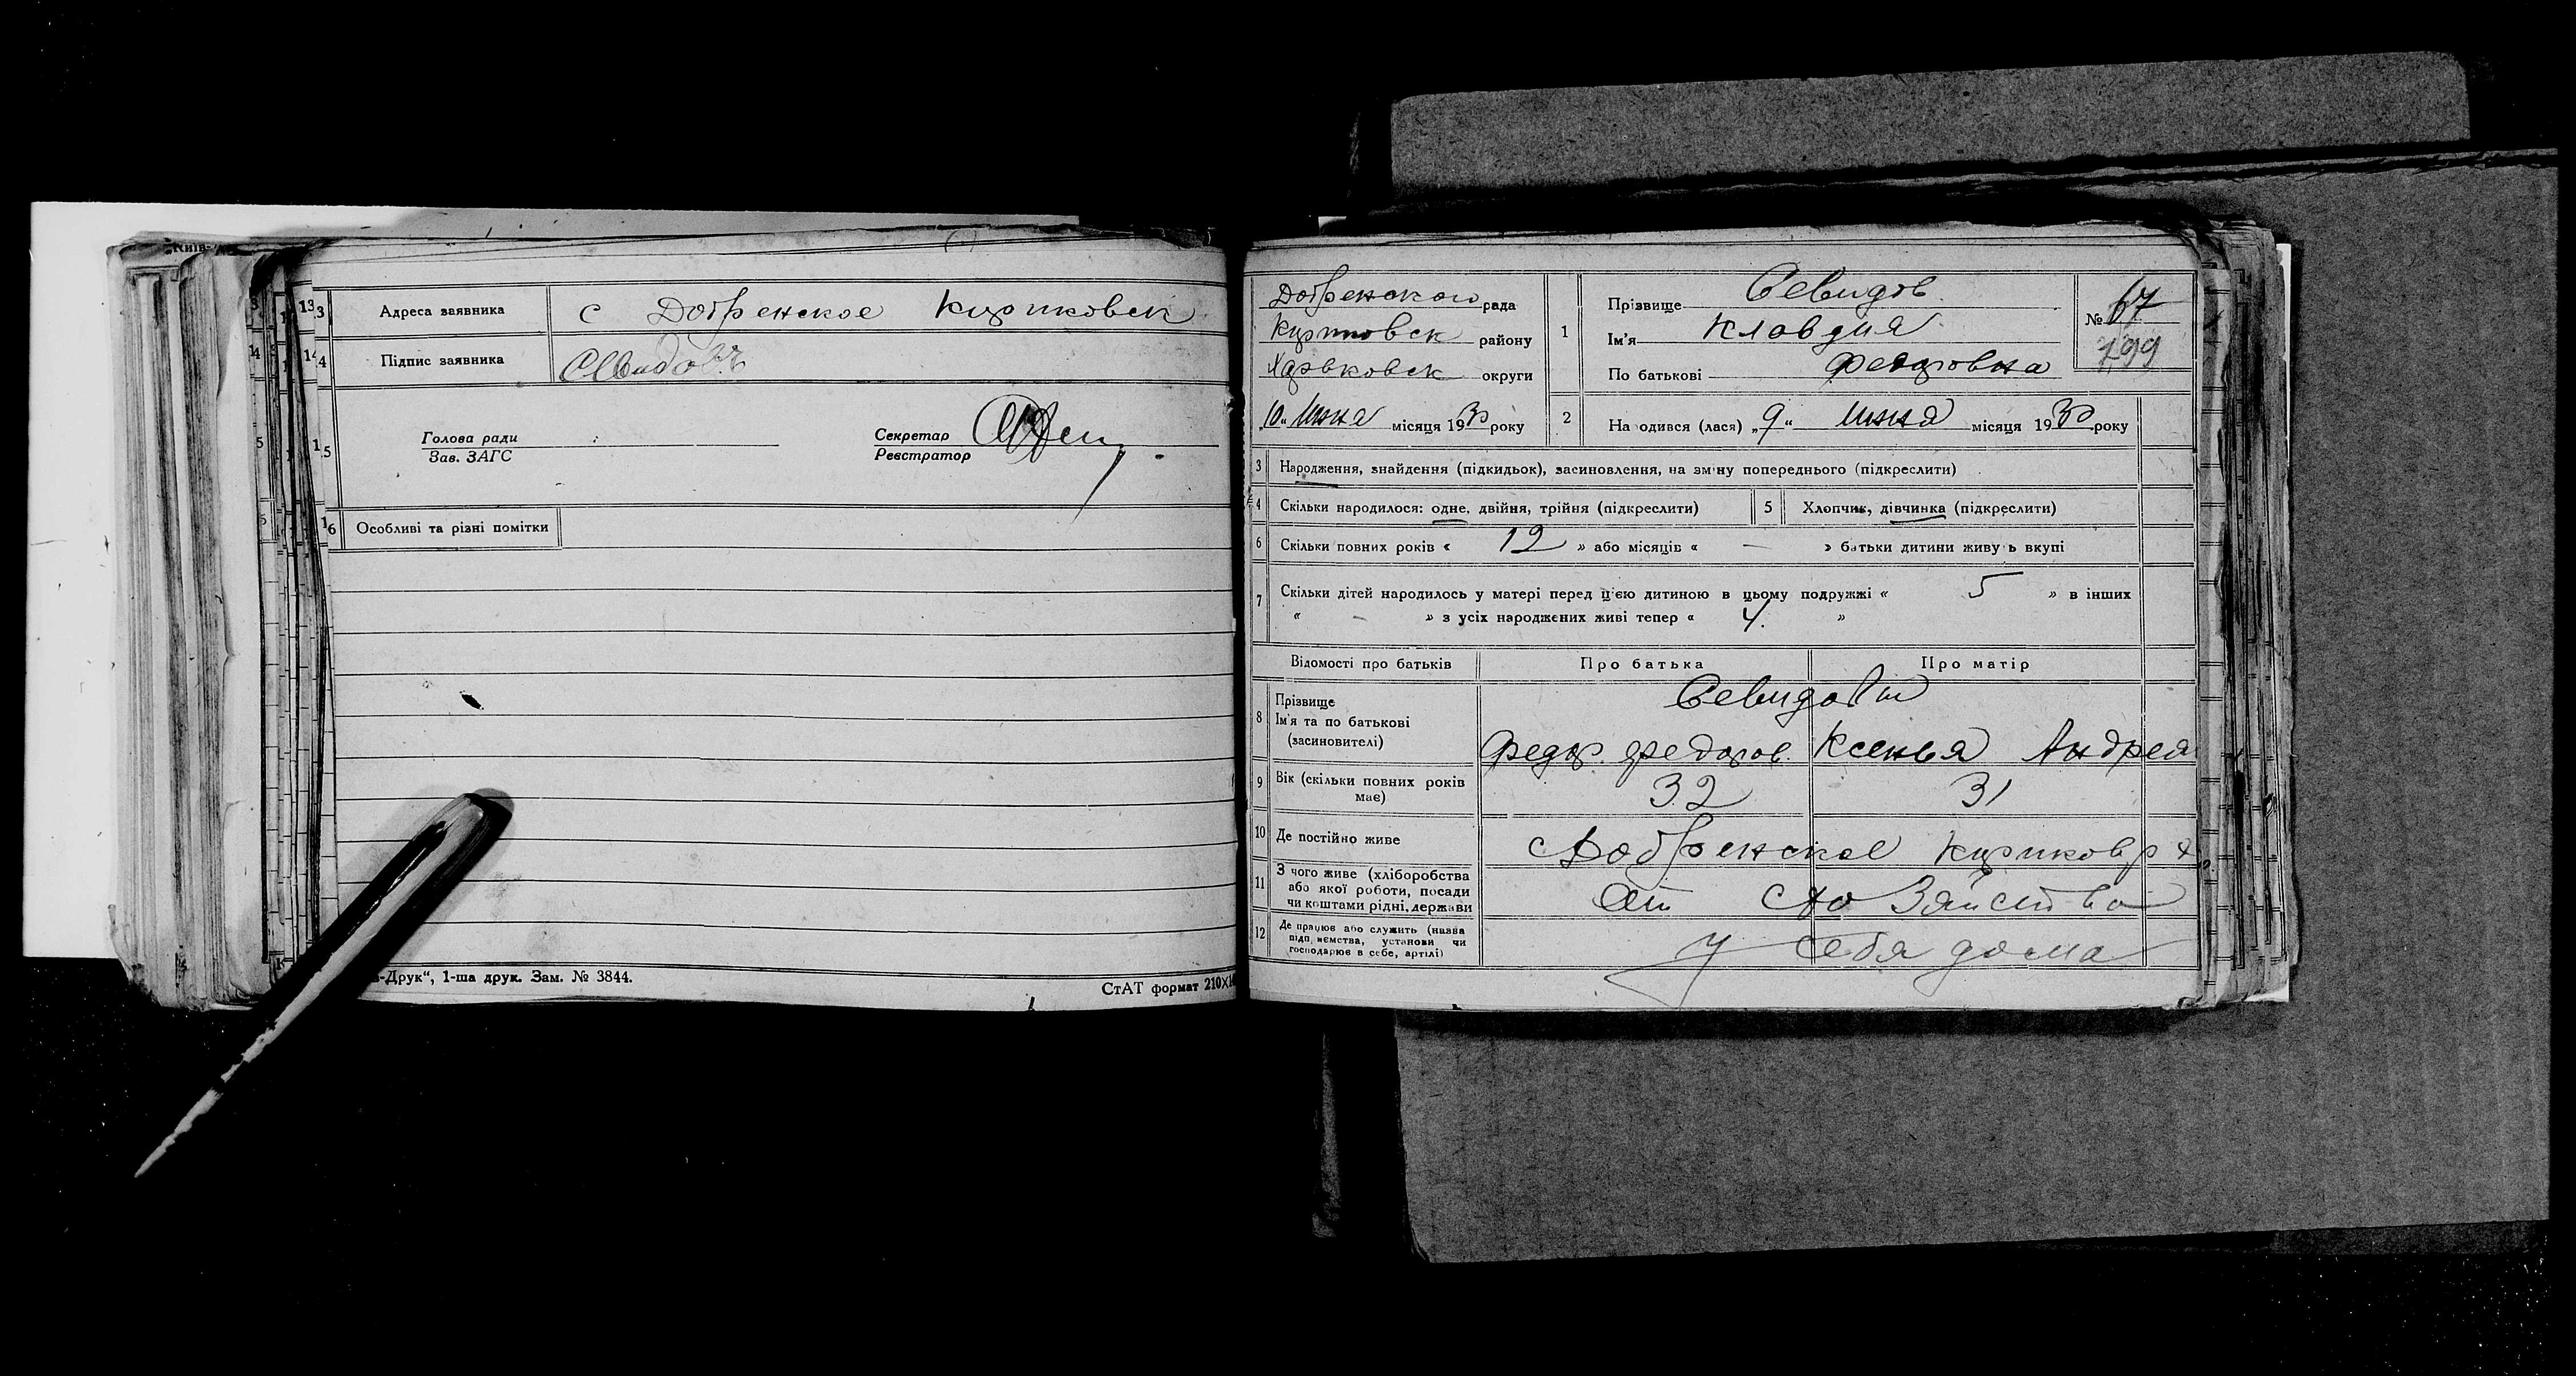 13 Адреса заявника с Добренское Куриковск
14 Підпис заявника
Голова ради
Зав. ЗАГС
Секретар
Реєстратор
15
16 Особливі та різні помітки
-Друк“, 1-ша друк. Зам. № 3844.
СтАТ формат 210×1
рада
району
Харьковск округи
„10„ июня місяця 1930 року
1 Прізвище Севидов
Ім'я Клавдия
По батькові Федоровна
№ 67
199
2 На одився (лася) „9“ июня місяця 1930 року
3 Народження, знайдення (підкидьок), засиновлення, на зміну попереднього (підкреслити)
4 Скільки народилося: одне, двійня, трійня (підкреслити)
5 Хлопчик, дівчинка (підкреслити)
6 Скільки повних років « 12 » або місяців « — » батьки дитини живуть вкупі
7 Скільки дітей народилось у матері перед цією дитиною в цьому подружжі « 5 » в інших
« — » з усіх народжених живі тепер « 4. »
Відомості про батьків Про батька Про матір
8 Прізвище
Ім'я та по батькові
(засиновителі)
Севидовы
Федор. Федоров. Ксенья Андрея
9 Вік (скільки повних років має) 32 31
10 Де постійно живе с Добренское
11 З чого живе (хліборобства
або якої роботи, посади
чи коштами рідні, держави
От с/хозяйства
12 Де працює або служить (назва
підприємства, установи чи
господарює в себе, артілі)
у себя дома